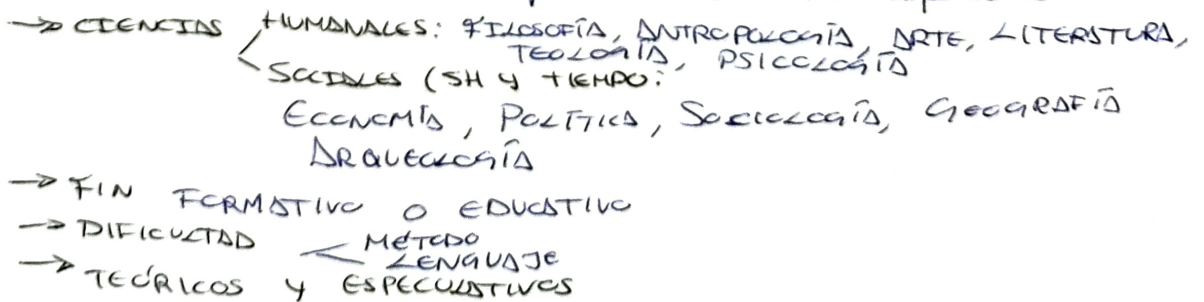 → CIENCIAS < HUMANALES: FILOSOFÍA, ANTROPOLOGÍA, ARTE, LITERATURA,
TEOLOGÍA, PSICOLOGÍA
SOCIALES (SH Y TIEMPO:
ECONOMÍA, POLÍTICA, SOCIOLOGÍA, GEOGRAFÍA
ARQUEOLOGÍA
→ FIN FORMATIVO O EDUCATIVO
→ DIFICULTAD < MÉTODO
LENGUAJE
→ TEÓRICOS Y ESPECULATIVOS